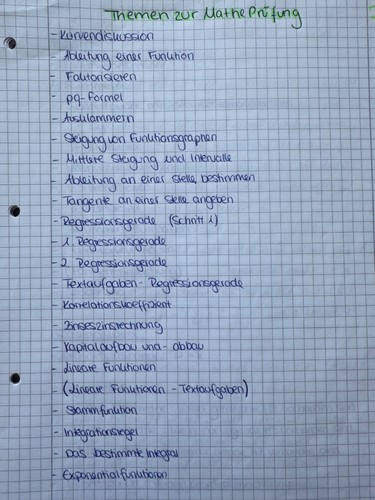 Themen zur Mathe Prüfung
- Kurvendiskussion
- Ableitung einer Funktion
- Faktorisieren
- pq-Formel
- Ausklammern
- Steigung von Funktionsgraphen
- Mittlere Steigung und Intervalle
- Ableitung an einer Stelle bestimmen
- Tangente an einer Stelle angeben
- Regressionsgerade (Schritt 1)
- 1. Regressionsgerade
- 2. Regressionsgerade
- Textaufgaben - Regressionsgerade
- Korrelationskoeffizient
- Zinseszinsrechnung
- Kapitalaufbau und -abbau
- Lineare Funktionen
- (Lineare Funktionen - Textaufgaben)
- Stammfunktion
- Integrationsregel
- Das bestimmte Integral
- Exponentialfunktionen